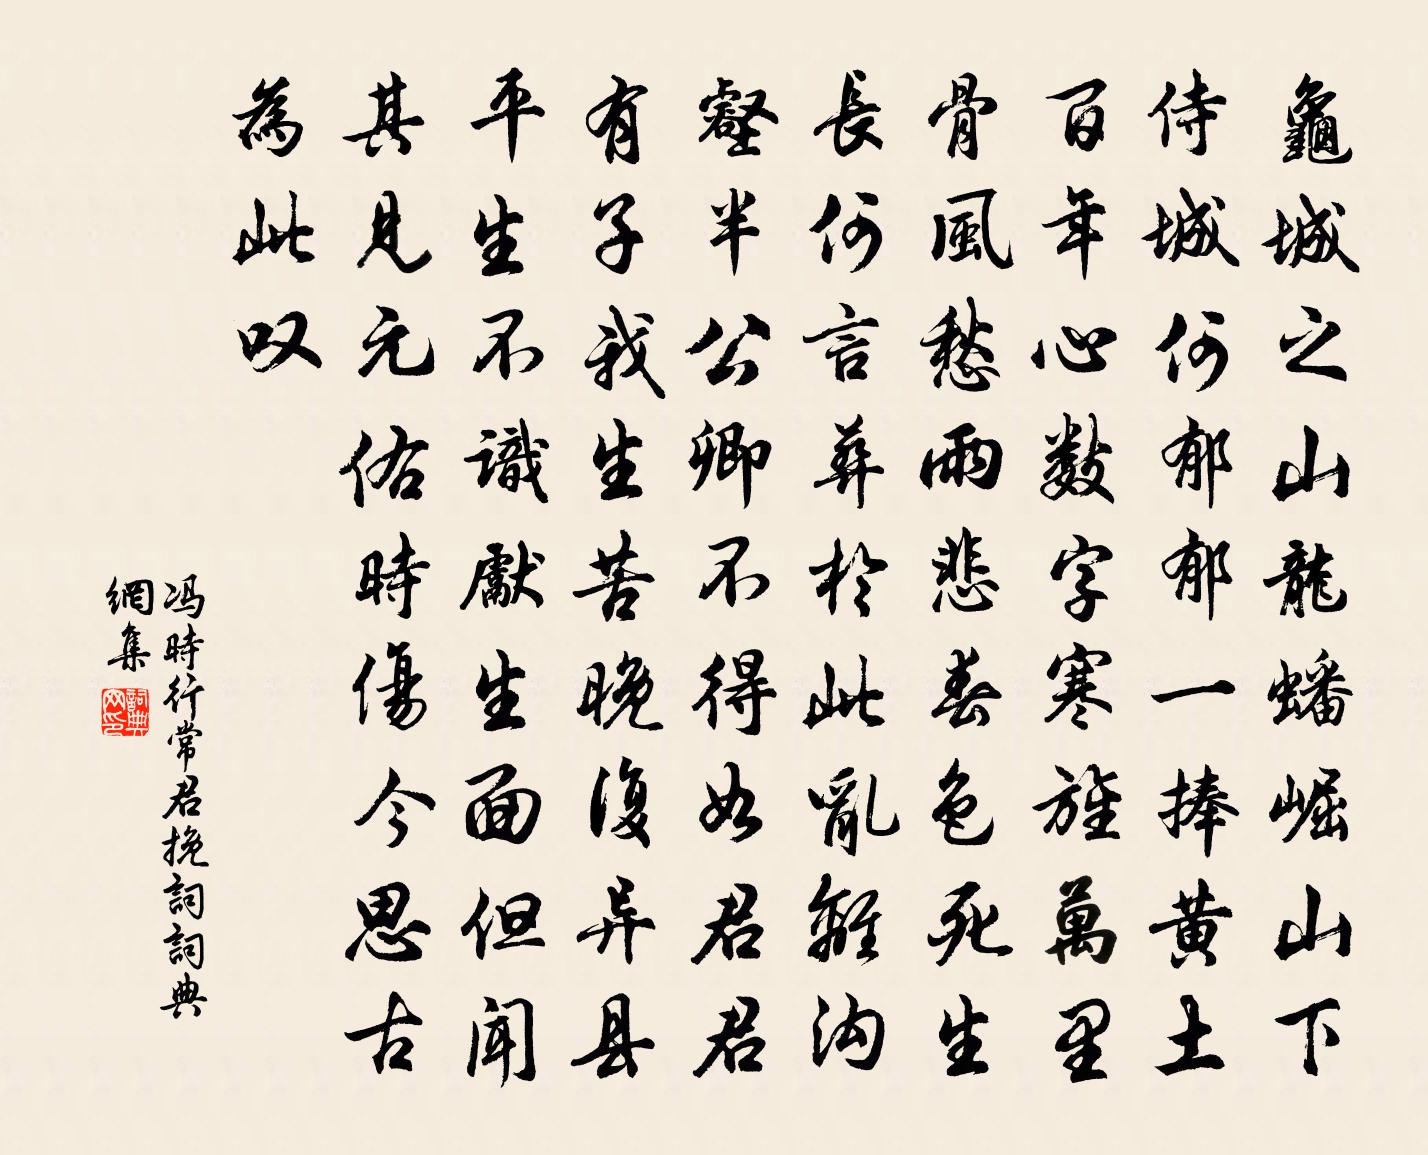 龜城之山龍蟠崛山下
侍城何郁郁一捧黄土
百年心數字寒旌萬里
骨風愁雨悲春色死生
長何言葬於此亂離沟
壑半公卿不得如君君
有子我生苦晚復异县
平生不識獻生面但闻
其見元佑時傷今思古
為此叹
冯時行常君挽詞詞典
網集
詞典網印